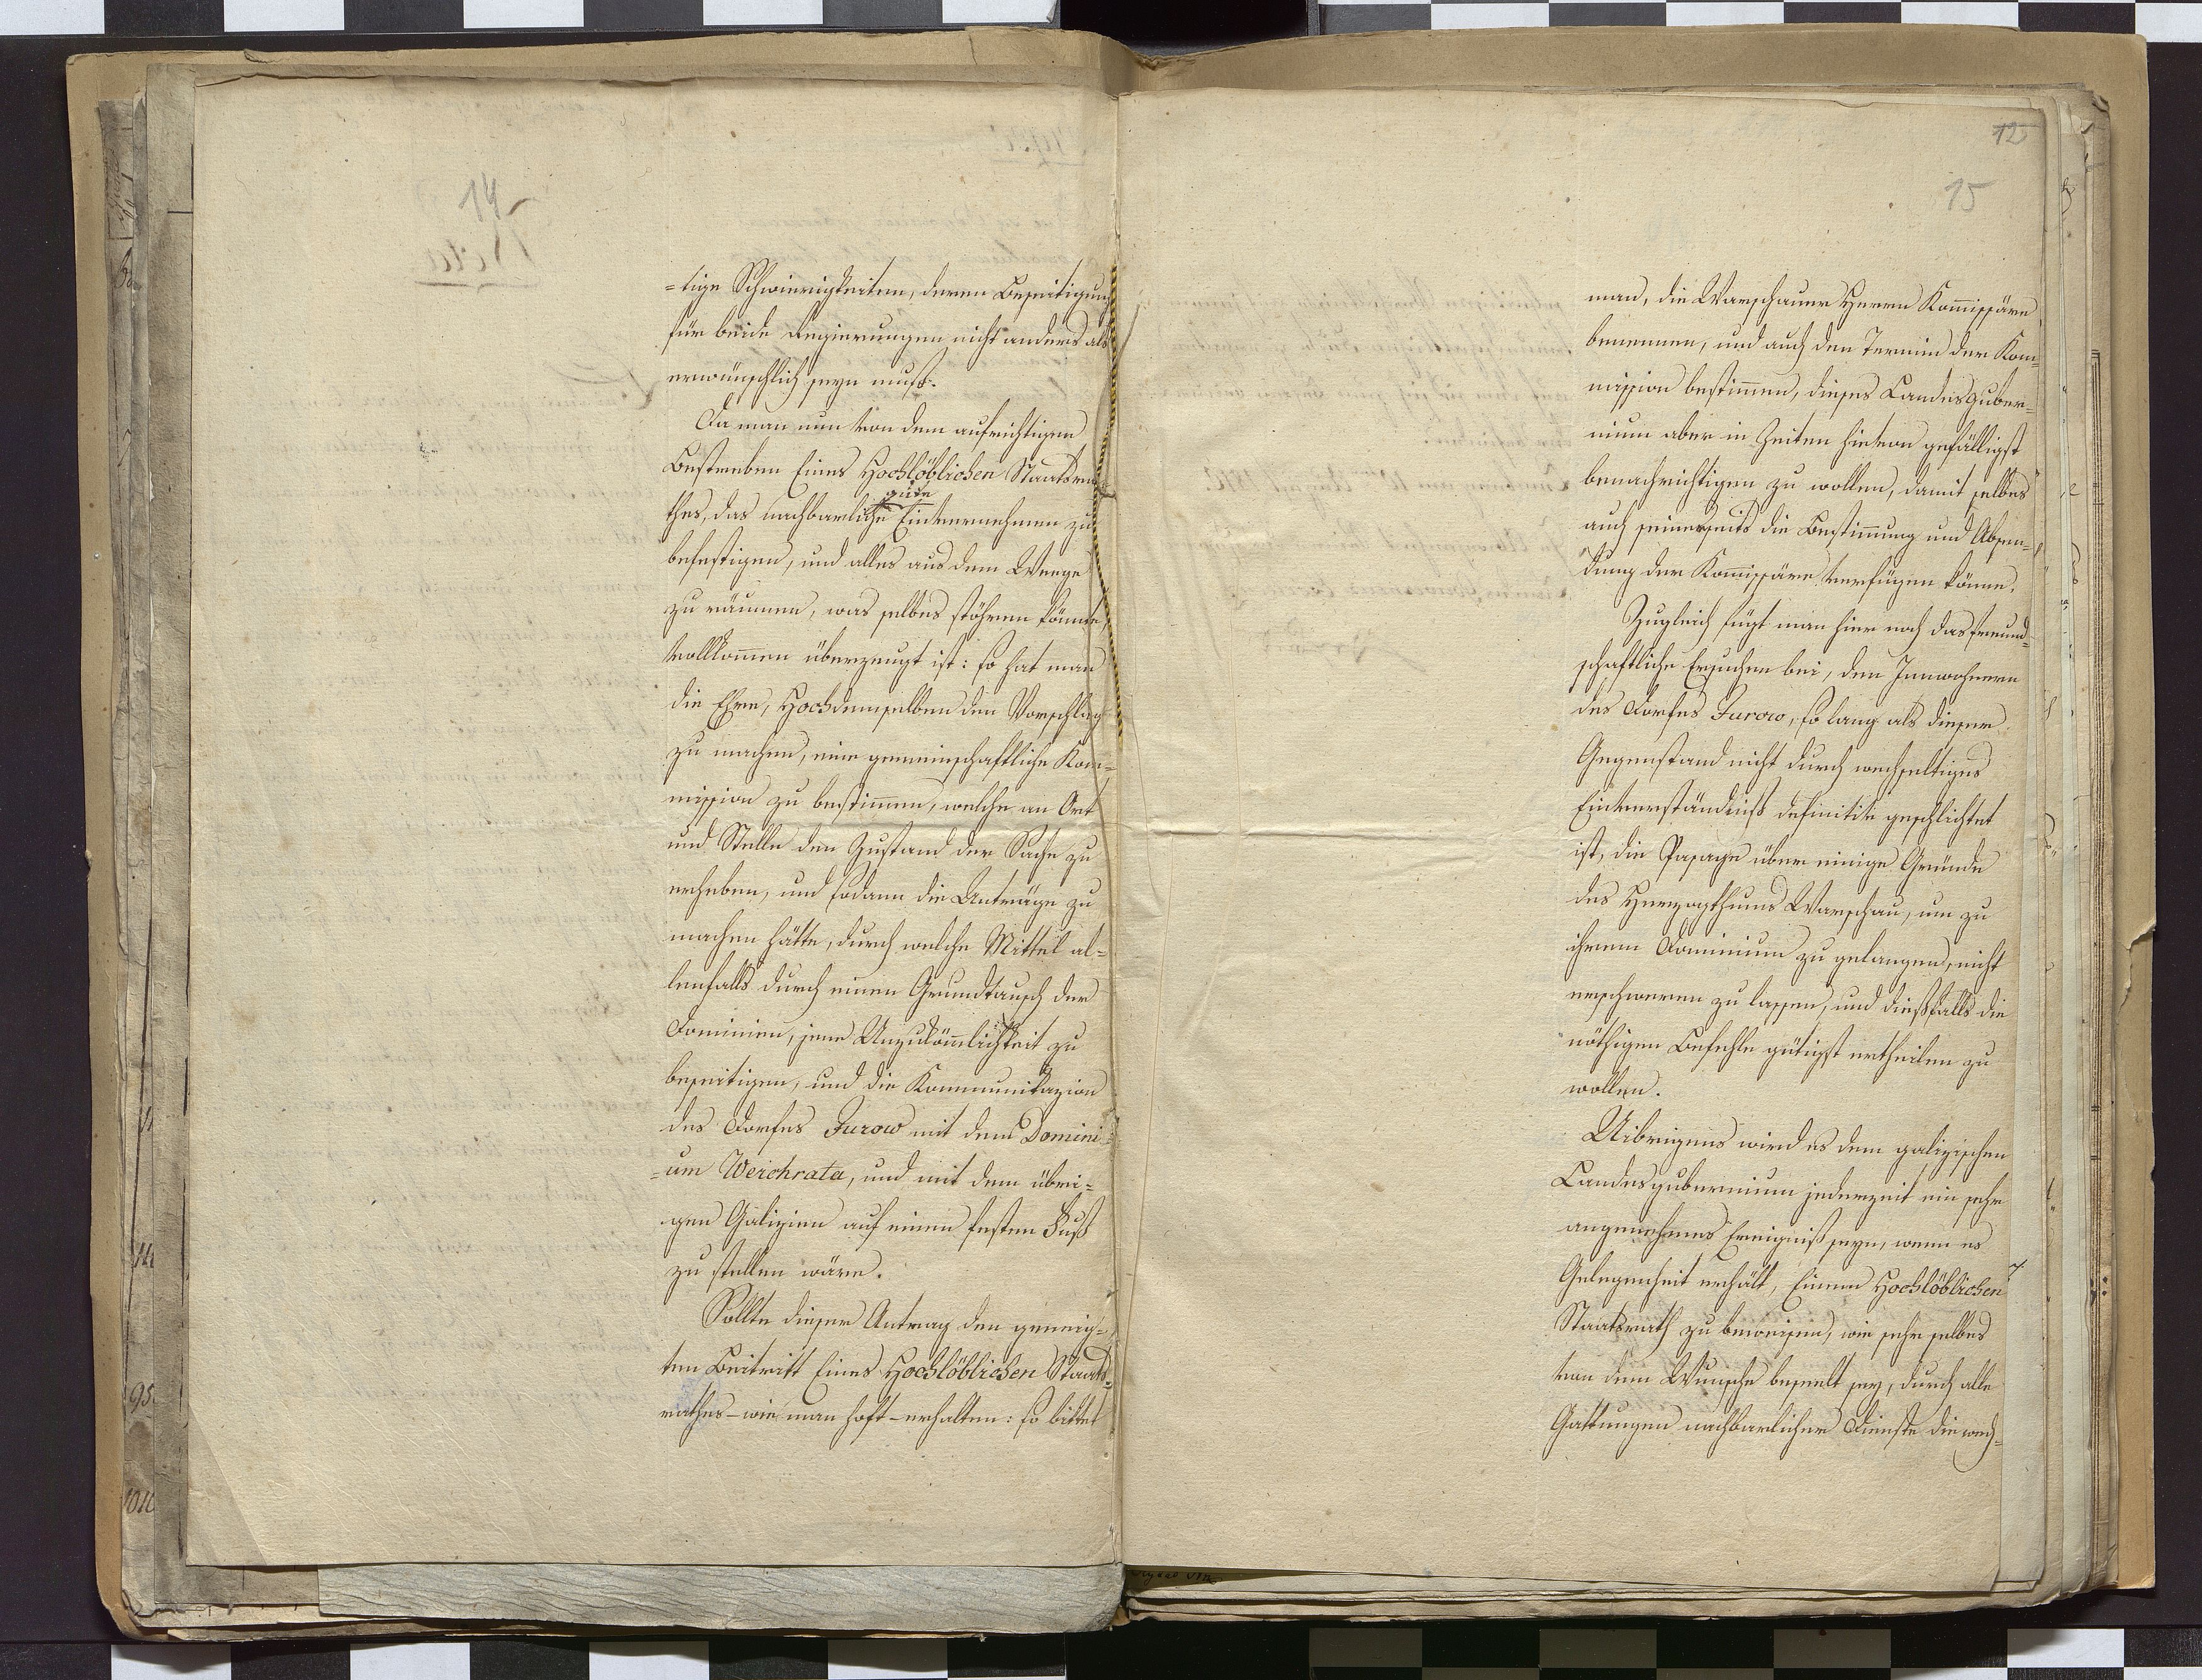 14
=tige Schwierigkeiten, deren Beseitigung
für beide Regierungen nicht anders als
erwünschlich seyn muß.
Da man nun von dem aufrichtigen
Bestreben Eines Hochlöblichen Staatsra=
gute
thes, das nachbarliche Einvernehmen zu
befestigen, und alles aus dem Weege
zu räumen, was selbes stöhren könnte,
vollkommen überzeugt ist: so hat man
die Ehre, Hochdemselben den Vorschlag
zu machen, eine gemeinschaftliche Kom=
mission zu bestimmen, welche an Ort
und Stelle den Zustand der Sache zu
erheben, und sodann die Anträge zu
machen hätte, durch welche Mittel al=
lenfalls durch einen Grundtausch der
Dominien, jene Unzukömmlichkeit zu
beseitigen, und die Kommunikazion
des Dorfes Jurow mit dem Domini=
=um Werchrata, und mit dem übri=
gen Galizien auf einen festen Fuß
zu stellen wäre.
Sollte dieser Antrag den geneig=
ten Beitritt Eines Hochlöblichen Staats=
rathes – wie man hoft – erhalten: so bittet
12
15
man, die Warschauer Herrn Kommissäre
benennen, und auch den Termin der Kom=
mission bestimmen, dieses Landesguber=
nium aber in Zeiten hievon gefälligst
benachrichtigen zu wollen, damit selbes
auch seinerseits die Bestimmung und Absen=
dung der Kommissäre verfügen könne.
Zugleich fügt man hier noch das freund=
schaftliche Ersuchen bei, den Innwohnern
des Dorfes Jurow, so lang als dieser
Gegenstand nicht durch wechseltiges
Einverständniß definitiv geschlichtet
ist, die Passage über einige Gründe
des Herzogthums Warschau, um zu
ihrem Dominium zu gelangen, nicht
erschweren zu lassen, und dießfalls die
nöthigen Befehle gütigst ertheilen zu
wollen.
Uibrigens wird es dem galizischen
Landesgubernium jederzeit ein sehr
angenehmes Ereigniß seyn, wenn es
Gelegenheit erhält, Einem Hochlöblichen
Staatsrath zu beweisen, wie sehr selbes
von dem Wunsche beseelt sey, durch alle
Gattungen nachbarlicher Dienste die wech=